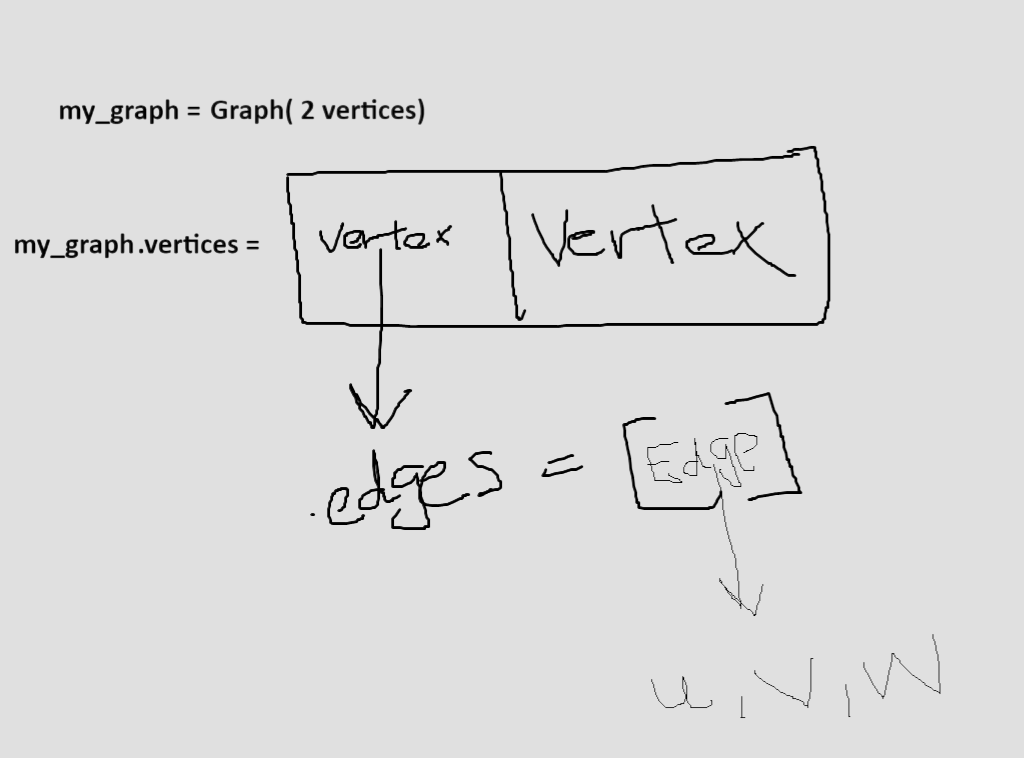 my_graph = Graph( 2 vertices)
my_graph.vertices = vertex Vertex
.edges = [Edge]
u, V, W